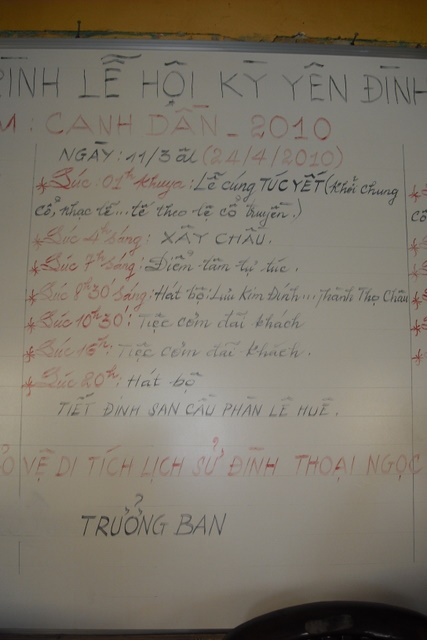 RÌNH LỄ HỘI KỲ YÊN ĐÌNH
M: CANH DẦN - 2010
NGÀY: 11/3 âl (24/4/2010)
Lúc: 01h khuya: Lễ cúng TÚC YẾT (khởi chung
cổ, nhạc tế... tế theo lệ cổ truyền.)
Lúc 4h sáng: XÂY CHẦU.
Lúc 7h sáng: Điểm tâm tự túc.
Lúc 8h30 sáng: Hát bộ: Lưu Kim Đính... Thành Thọ Châu
Lúc 10h30: Tiệc cơm đãi khách
Lúc 16h: Tiệc cơm đãi khách.
Lúc 20h: Hát bộ
TIẾT ĐINH SAN CẦU PHÀN LÊ HUÊ.
ẢO VỆ DI TÍCH LỊCH SỬ ĐÌNH THOẠI NGỌC
TRƯỞNG BAN